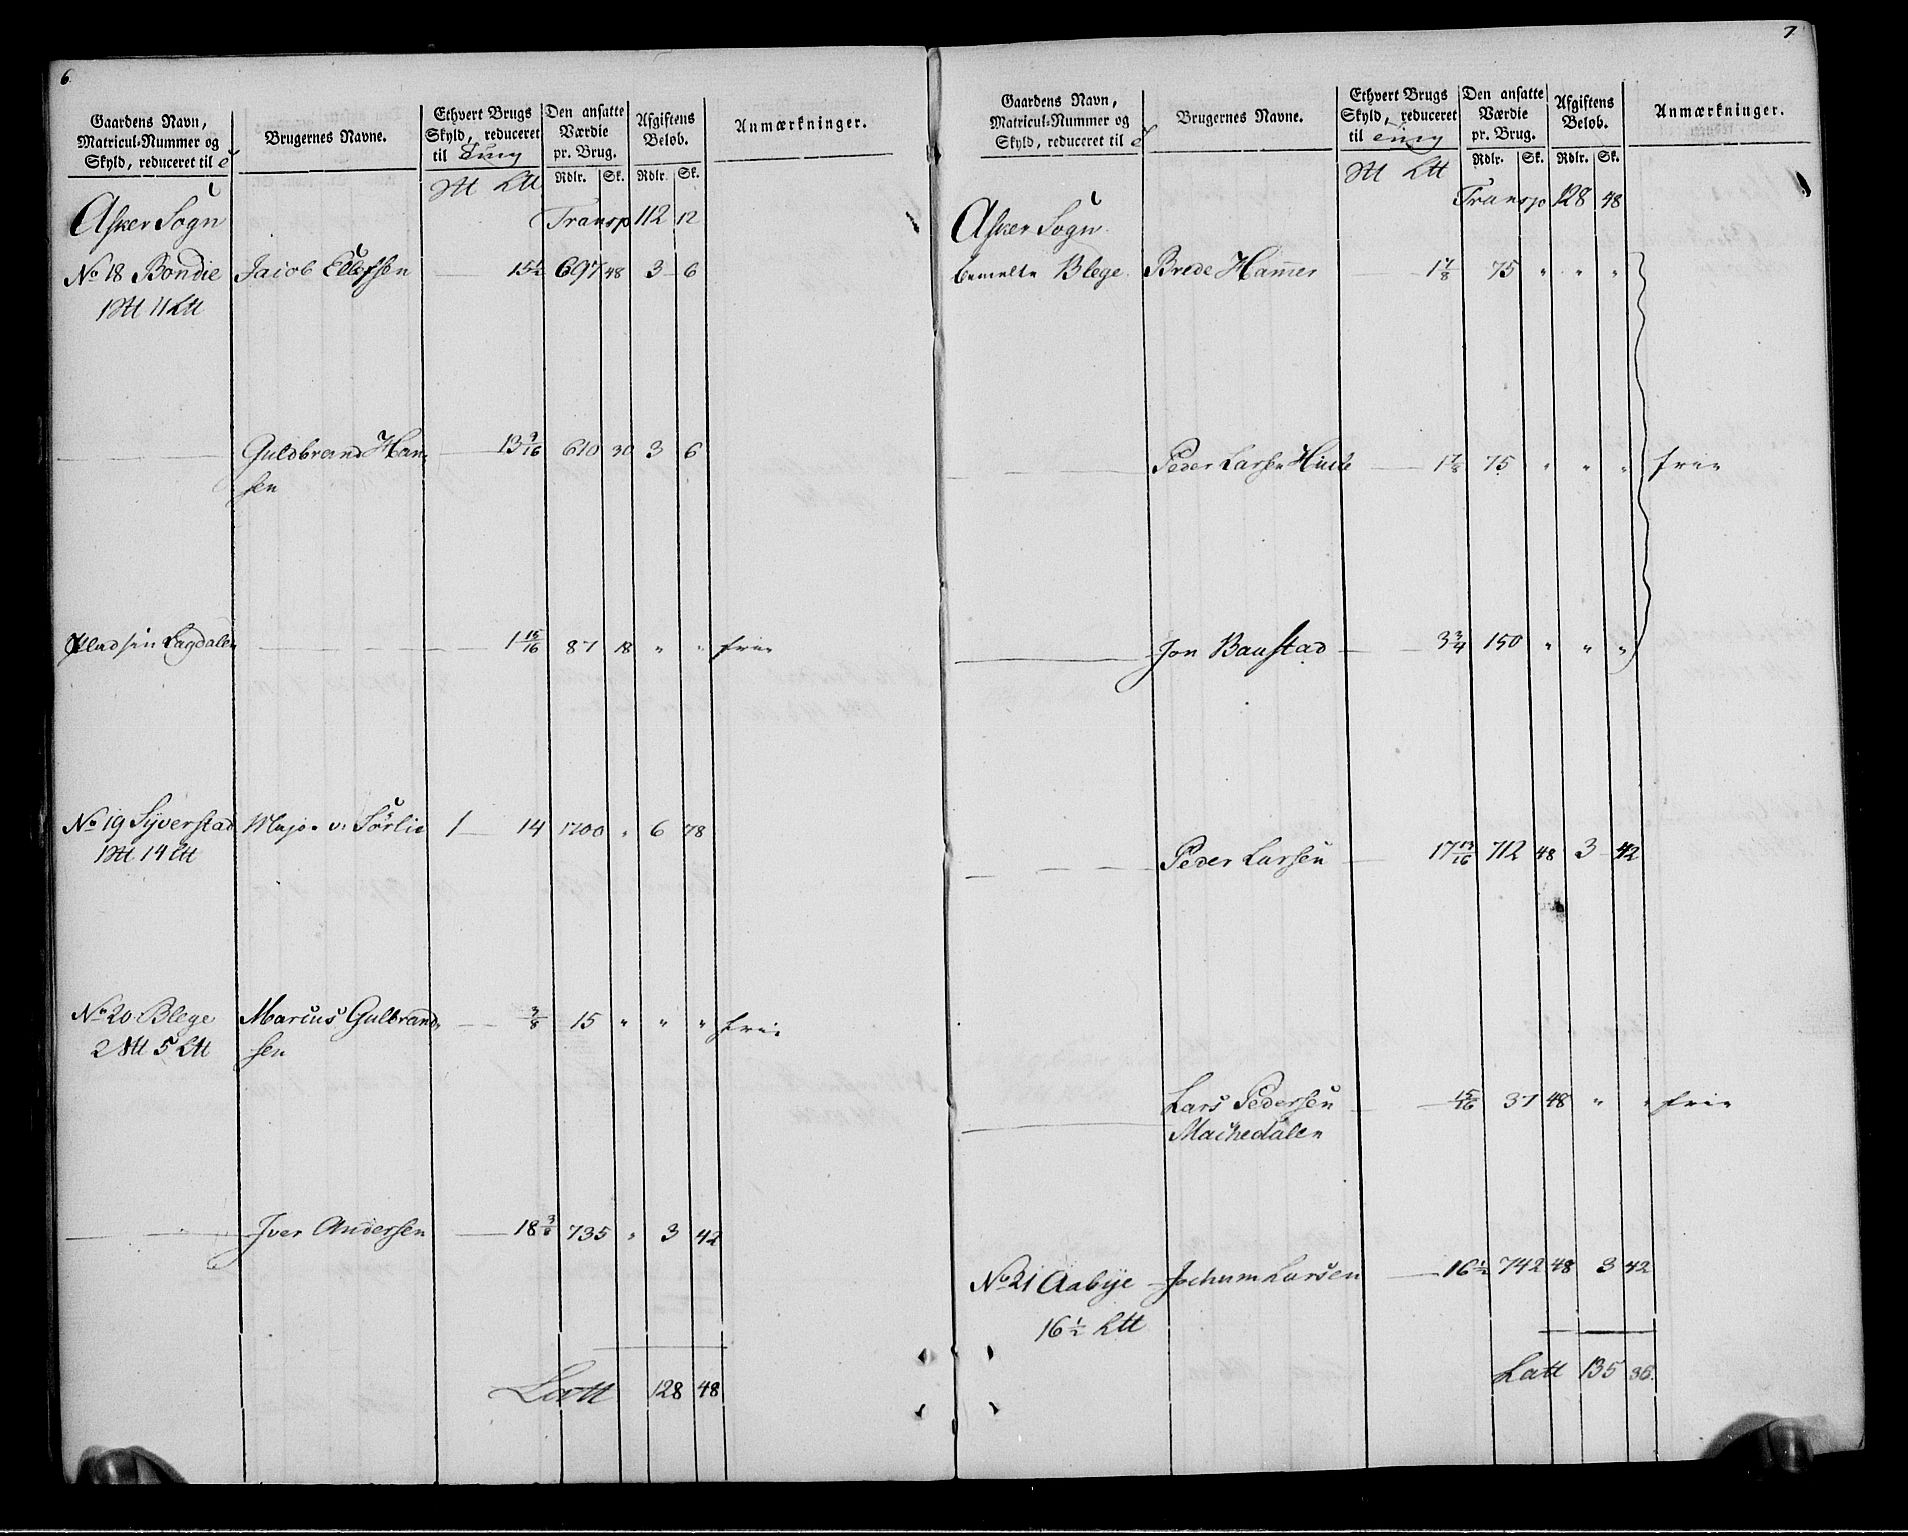 6
Gaardens Navn, Matricul-Nummer og Skyld, reduceret til
Brugernes Navne.
Ethvert Brugs Skyld, reduceret til Tung
Den ansatte Værdie pr. Brug.
Afgiftens Beløb.
Anmærkninger.
Rdlr. Sk. Rdlr. Sk.
Asker Sogn Transp 112 12
No 18 Bondie Jacob Ellefsen 15½ 697 48 3 6
1 11
Guldbrand Han- 13 9/16 610 30 3 6
sen
Pladsen Lagdalen 1 15/16 87 18 " " frie
No 19 Syverstad Major v: Sørlie 1 14 1700 " 6 78
1 14
No 20 Blege Marcus Gulbrand- 3/8 15 " " " frie
2 5 sen
Iver Andersen 18 3/8 735 " 3 42
Latt 128 48
7
Gaardens Navn, Matricul-Nummer og Skyld, reduceret til
Brugernes Navne.
Ethvert Brugs Skyld, reduceret til Tung
Den ansatte Værdie pr. Brug.
Afgiftens Beløb.
Anmærkninger.
Rdlr. Sk. Rdlr. Sk.
Transp 128 48
Asker Sogn
bemelte Blege Brede Hammer 1 7/8 75 " " "
Peder Larsen 1 7/8 75 " " " frie
Jon Baustad 3 3/4 150 " " "
Peder Larsen 17 13/16 712 48 3 42
Lars Pedersen 15/16 37 48 " " frie
Machedalen
No 21 Aabye Jochum Larsen 16½ 742 48 3 42
16½
Latt 135 36